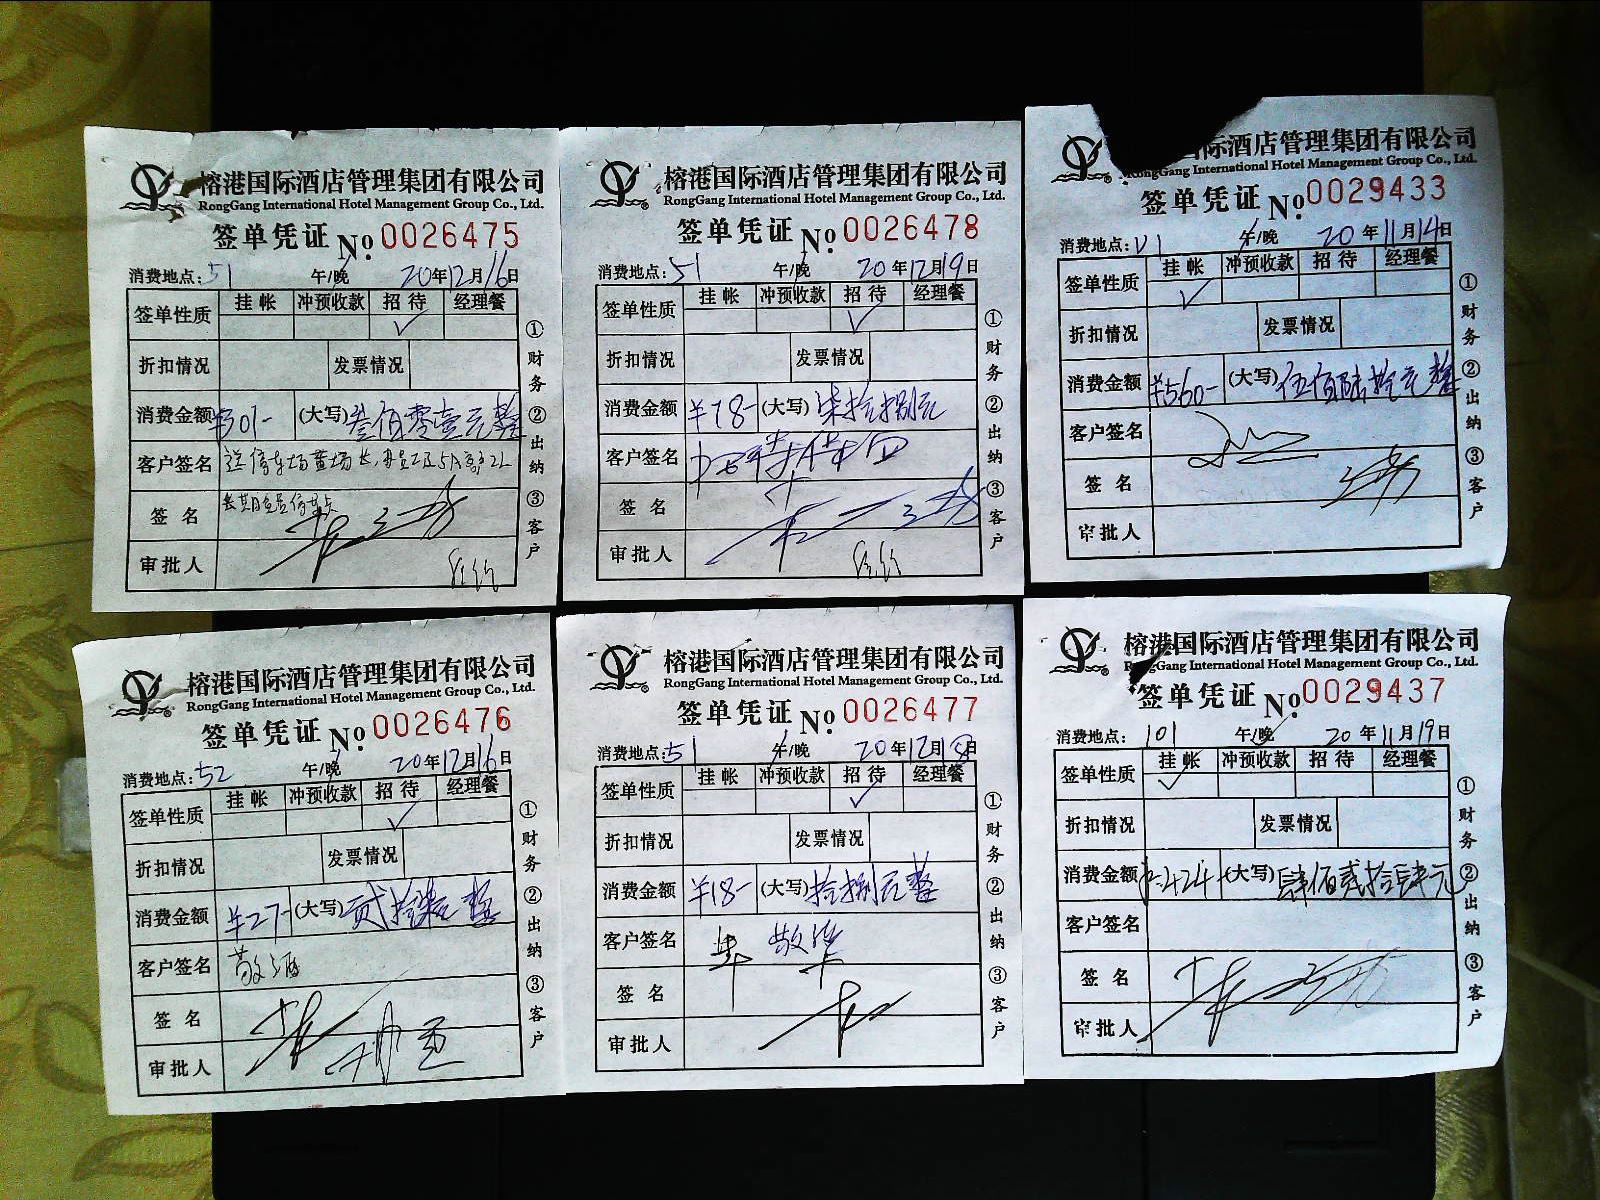 榕港国际酒店管理集团有限公司
RongGang International Hotel Management Group Co., Ltd.
签单凭证 No. 0026475
消费地点: 51 午/晚 20年12月16日
签单性质 挂帐 冲预收款 招待 经理餐
✓
折扣情况 发票情况
消费金额 ¥301- (大写) 叁佰零壹元整
客户签名
签名
审批人
①财务 ②出纳 ③客户
榕港国际酒店管理集团有限公司
RongGang International Hotel Management Group Co., Ltd.
签单凭证 No. 0026478
消费地点: 51 午/晚 20年12月19日
签单性质 挂帐 冲预收款 招待 经理餐
✓
折扣情况 发票情况
消费金额 ¥78- (大写) 柒拾捌元
客户签名
签名
审批人
①财务 ②出纳 ③客户
国际酒店管理集团有限公司
RongGang International Hotel Management Group Co., Ltd.
签单凭证 No. 0029433
消费地点: V1 午/晚 20年11月14日
签单性质 挂帐 冲预收款 招待 经理餐
✓
折扣情况 发票情况
消费金额 ¥560- (大写) 伍佰陆拾元整
客户签名
签名
审批人
①财务 ②出纳 ③客户
榕港国际酒店管理集团有限公司
RongGang International Hotel Management Group Co., Ltd.
签单凭证 No. 0026476
消费地点: 52 午/晚 20年12月16日
签单性质 挂帐 冲预收款 招待 经理餐
✓
折扣情况 发票情况
消费金额 ¥27- (大写) 贰拾柒元整
客户签名 敬酒
签名
审批人
①财务 ②出纳 ③客户
榕港国际酒店管理集团有限公司
RongGang International Hotel Management Group Co., Ltd.
签单凭证 No. 0026477
消费地点: 51 午/晚 20年12月18日
签单性质 挂帐 冲预收款 招待 经理餐
✓
折扣情况 发票情况
消费金额 ¥18- (大写) 拾捌元整
客户签名
签名
审批人
①财务 ②出纳 ③客户
榕港国际酒店管理集团有限公司
RongGang International Hotel Management Group Co., Ltd.
签单凭证 No. 0029437
消费地点: 101 午/晚 20年11月19日
签单性质 挂帐 冲预收款 招待 经理餐
✓
折扣情况 发票情况
消费金额 ¥:424 (大写) 肆佰贰拾肆元
客户签名
签名
审批人
①财务 ②出纳 ③客户